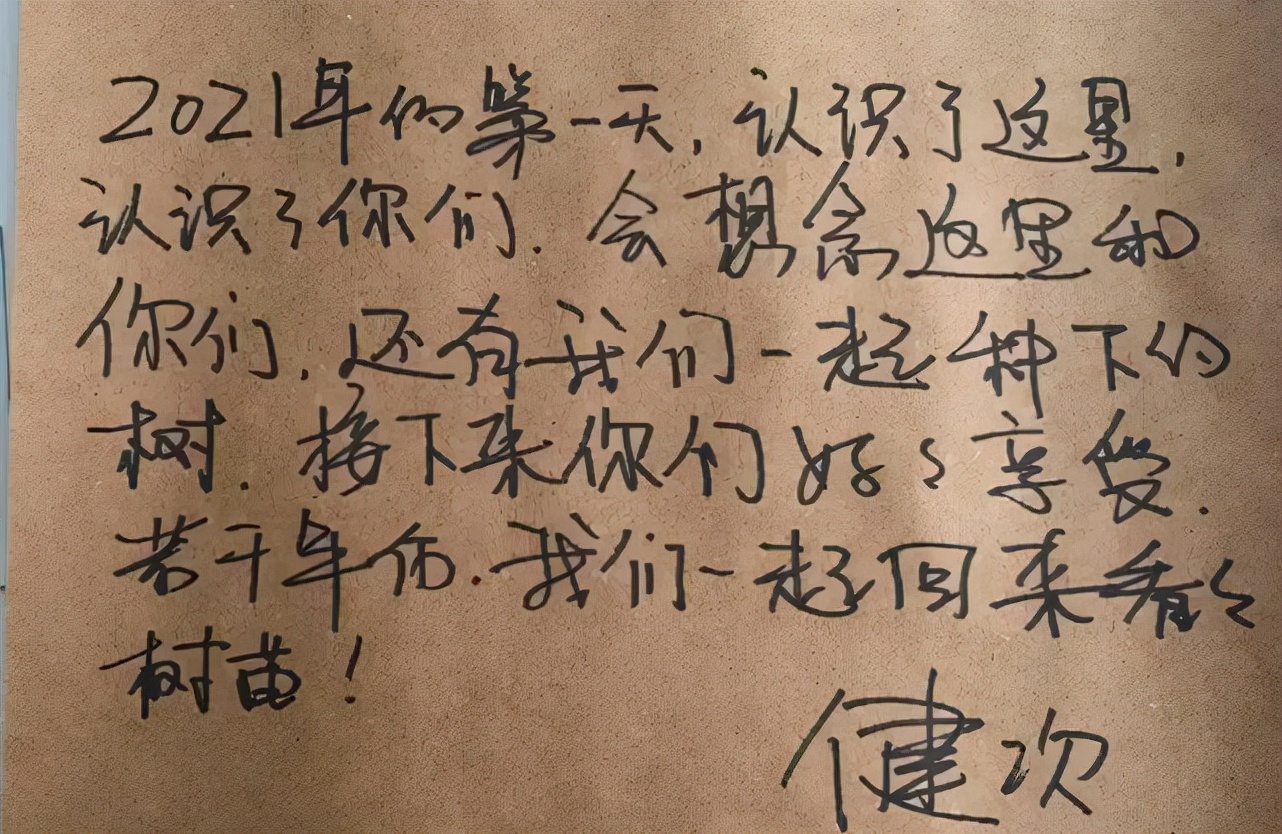 2021年的第一天,认识了这里,
认识了你们.会想念这里和
你们.还有我们一起种下的
树.接下来你们好々享受.
若干年后.我们一起回来看々
树苗!
健次